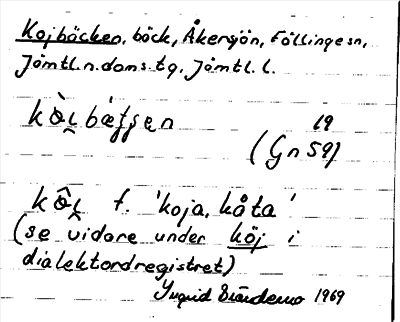 Kojbäcken, bäck, Åkersjön, Föllinge sn,
Jämtl.n.doms.tg, Jämtl. l.
kö̀i̯bæƭsen 19
(Gn 59)
kö̂i̯ f. 'koja, kåta'
(se vidare under köj i
dialektordregistret)
Ingrid 1969